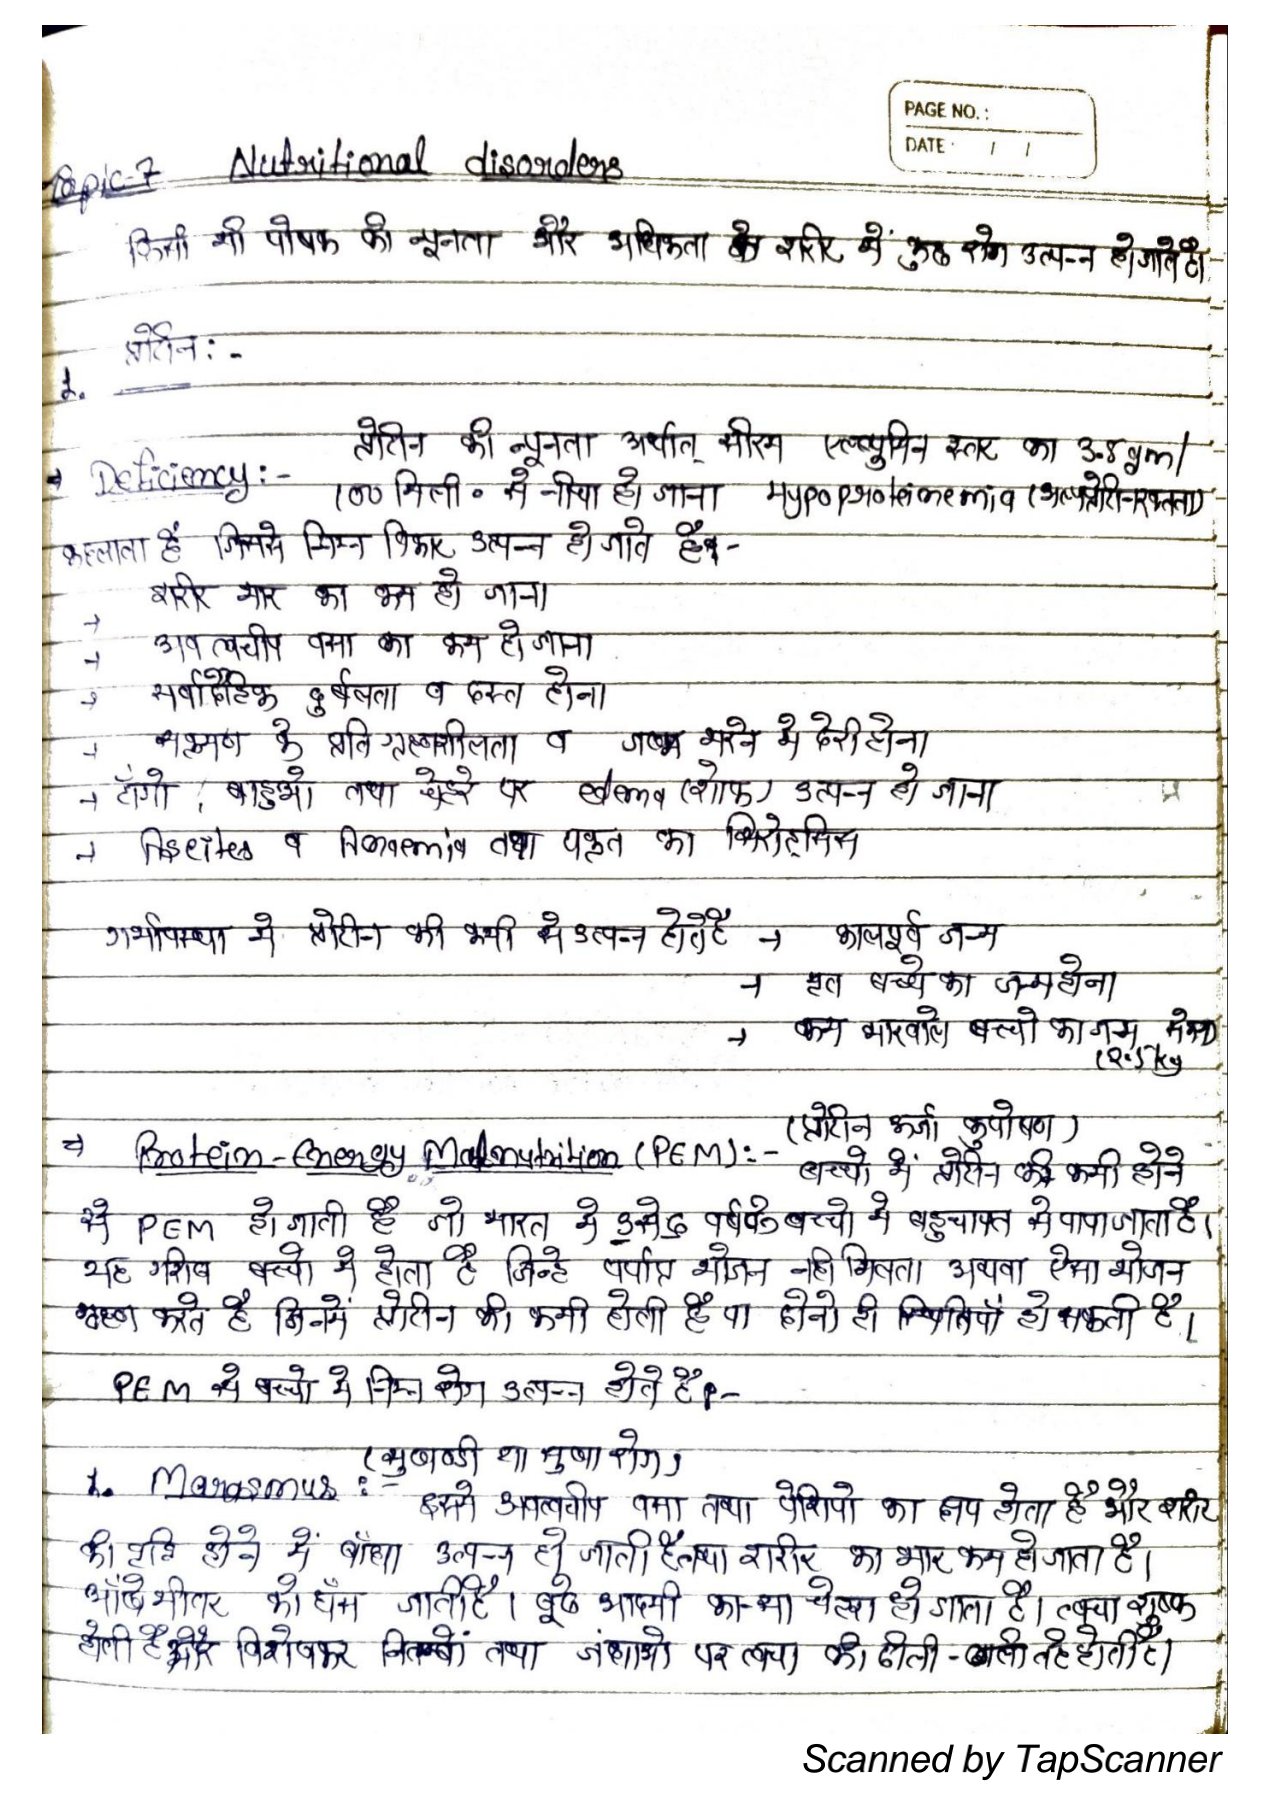 PAGE NO. :
DATE / /
Topic-7 Nutritional disorders
किसी भी पोषक की न्यूनता और अधिकता के शरीर में कुछ रोग उत्पन्न हो जाते है।
1. प्रोटीन: -
→ Deficiency:- प्रोटीन की न्यूनता अर्थात् सीरम एल्ब्युमिन स्तर का 3.8 gm/
100 मिली० से नीचा हो जाना Hypoproteinemia (अल्पप्रोटीनरक्तता)
कहलाता है जिससे निम्न विकार उत्पन्न हो जाते है:-
→ शरीर भार का कम हो जाना
→ अवत्वचीय वसा का कम हो जाना
→ सर्वादैहिक दुर्बलता व दस्त होना
→ संक्रमण के प्रति ग्रहणशीलता व जख्म भरने मे देरी होना
→ टाँगो, बाहुओ तथा चेहरे पर edema (शोफ) उत्पन्न हो जाना
→ Ascites व Anaemia तथा यकृत का सिरोह्सिस
गर्भावस्था मे प्रोटीन की कमी से उत्पन्न होते है → कालपूर्व जन्म
→ मृत बच्चे का जन्म होना
→ कम भारवाले बच्चो का जन्म
(2.5 kg
→ Protein-Energy Malnutrition (PEM):- (प्रोटीन ऊर्जा कुपोषण)
बच्चो में प्रोटीन की कमी होने
से PEM हो जाती है जो भारत मे 3 से 6 वर्ष के बच्चो मे बहुचायत से पाया जाता है।
यह गरीब बच्चो मे होता है जिन्हे पर्याप्त भोजन नही मिलता अथवा ऐसा भोजन
ग्रहण करते है जिनमें प्रोटीन की कमी होती है या दोनो ही स्थितियाँ हो सकती है।
PEM से बच्चो मे निम्न रोग उत्पन्न होते है:-
(सुखण्डी या सुखा रोग)
1. Marasmus :- इसमे अवत्वचीय वसा तथा पेशियो का क्षय होता है और शरीर
की वृद्धि होने में बाँधा उत्पन्न हो जाती है तथा शारीर का भार कम हो जाता है।
आँखे भीतर को धँस जाती है। बूढे आदमी का-सा चेहरा हो जाता है। त्वचा शुष्क
होती है और विशेषकर नितम्बों तथा जंघाओ पर त्वचा की ढीली-ढाली तहे होती है।
Scanned by TapScanner